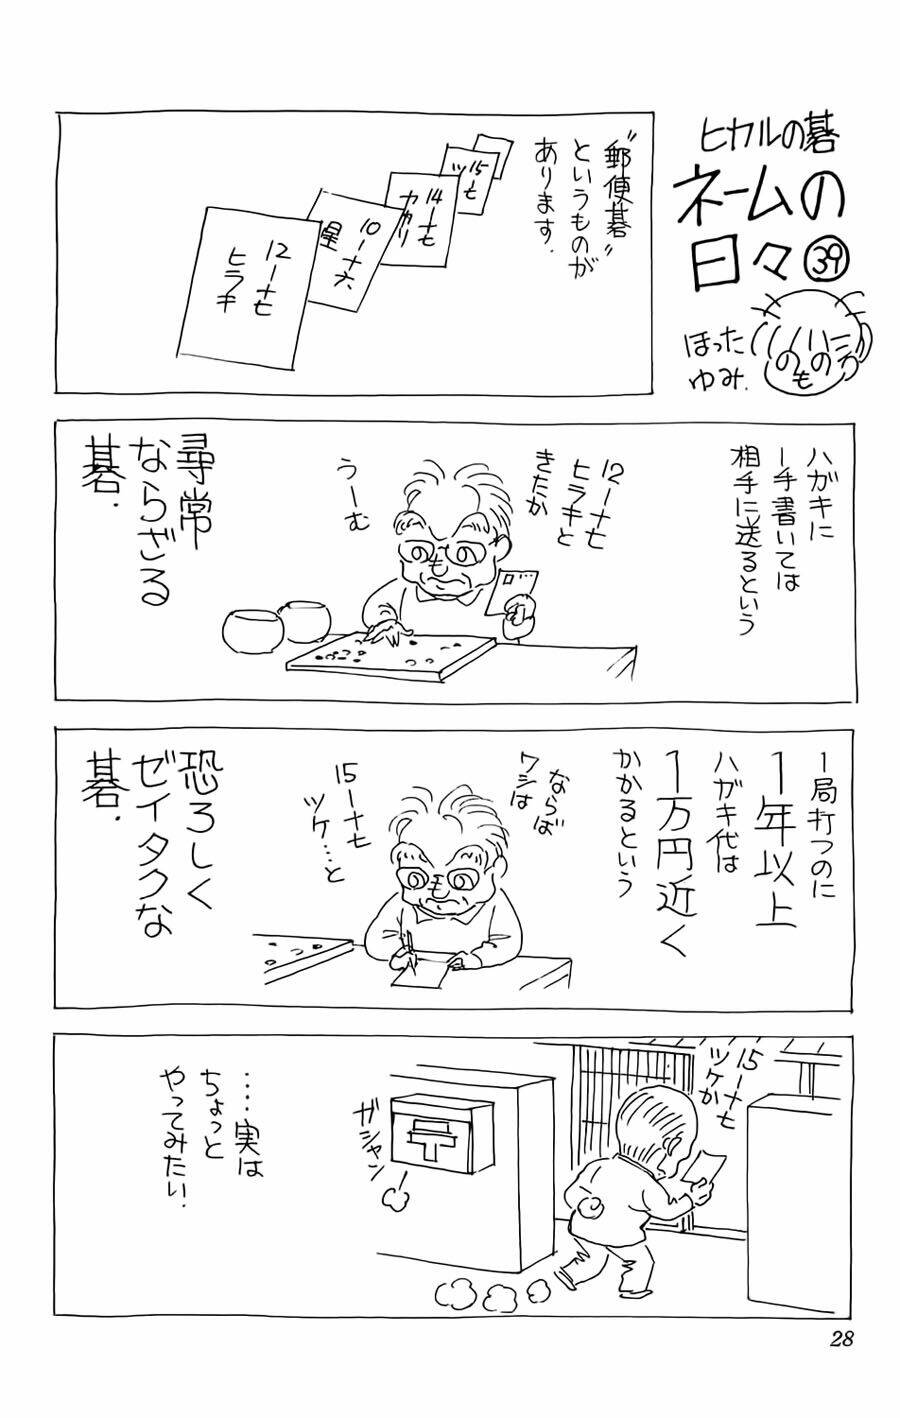 ヒカルの碁
ネームの
日々㊴
ほった
ゆみ.
"郵便碁"
というものが
あります.
15ー七
ツ
14ー十七
カカリ
10ー十六
星
12ー十七
ヒラキ
ハガキに
一手書いては
相手に送るという
12ー十七
ヒラキと
きたか
うーむ
尋常
ならざる
碁.
1局打つのに
1年以上
ハガキ代は
1万円近く
かかるという
ならば
ワシは
15ー十七
ツケ…と
恐ろしく
ゼイタクな
碁.
15ー十七
ツケか
ガシャン
……実は
ちょっと
やってみたい.
28